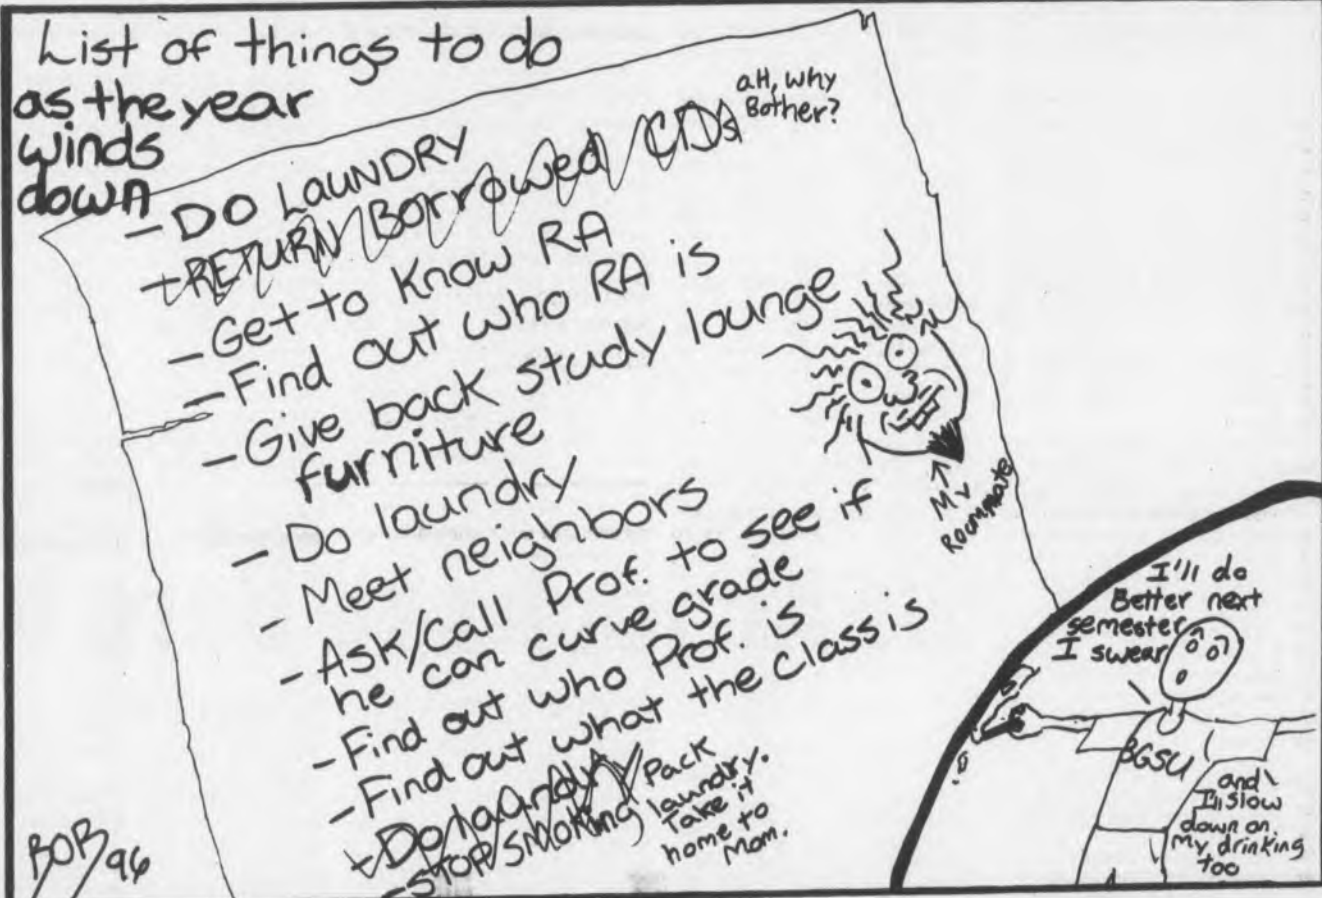 List of things to do
as the year
winds
down
- DO LAUNDRY
- RETURN Borrowed CDs
aH, why
Bother?
- Get to Know RA
- Find out who RA is
- Give back study lounge
furniture
- Do laundry
- Meet neighbors
- Ask/Call Prof. to see if
he can curve grade
- Find out who Prof. is
- Find out what the Class is
- Do laundry
- STOP SMOKING
Pack
laundry.
Take it
home to
Mom.
My
Roommate
I'll do
Better next
semester
I swear
BGSU
and
I'll slow
down on
My drinking
too
BOB/96